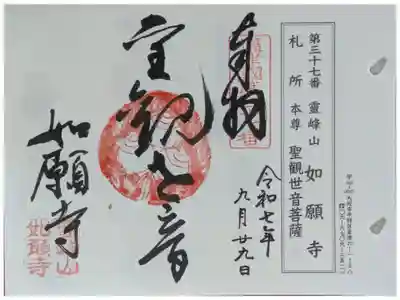 第三十七番 霊峰山
札所 本尊 如願寺
聖観世音菩薩
奉拝
令和七年
九月廿九日
聖観世音
如願寺
如願寺